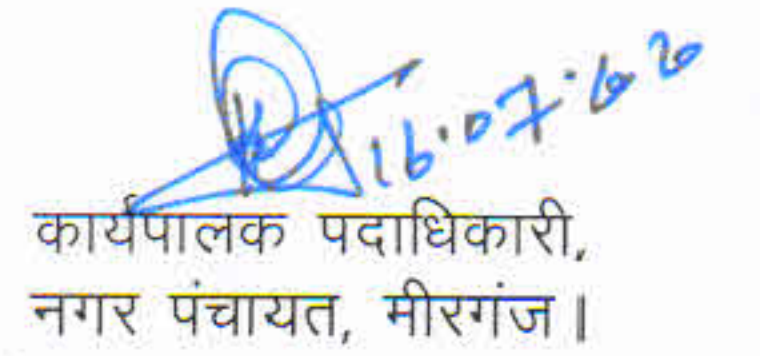 16.07.20
कार्यपालक पदाधिकारी,
नगर पंचायत, मीरगंज।